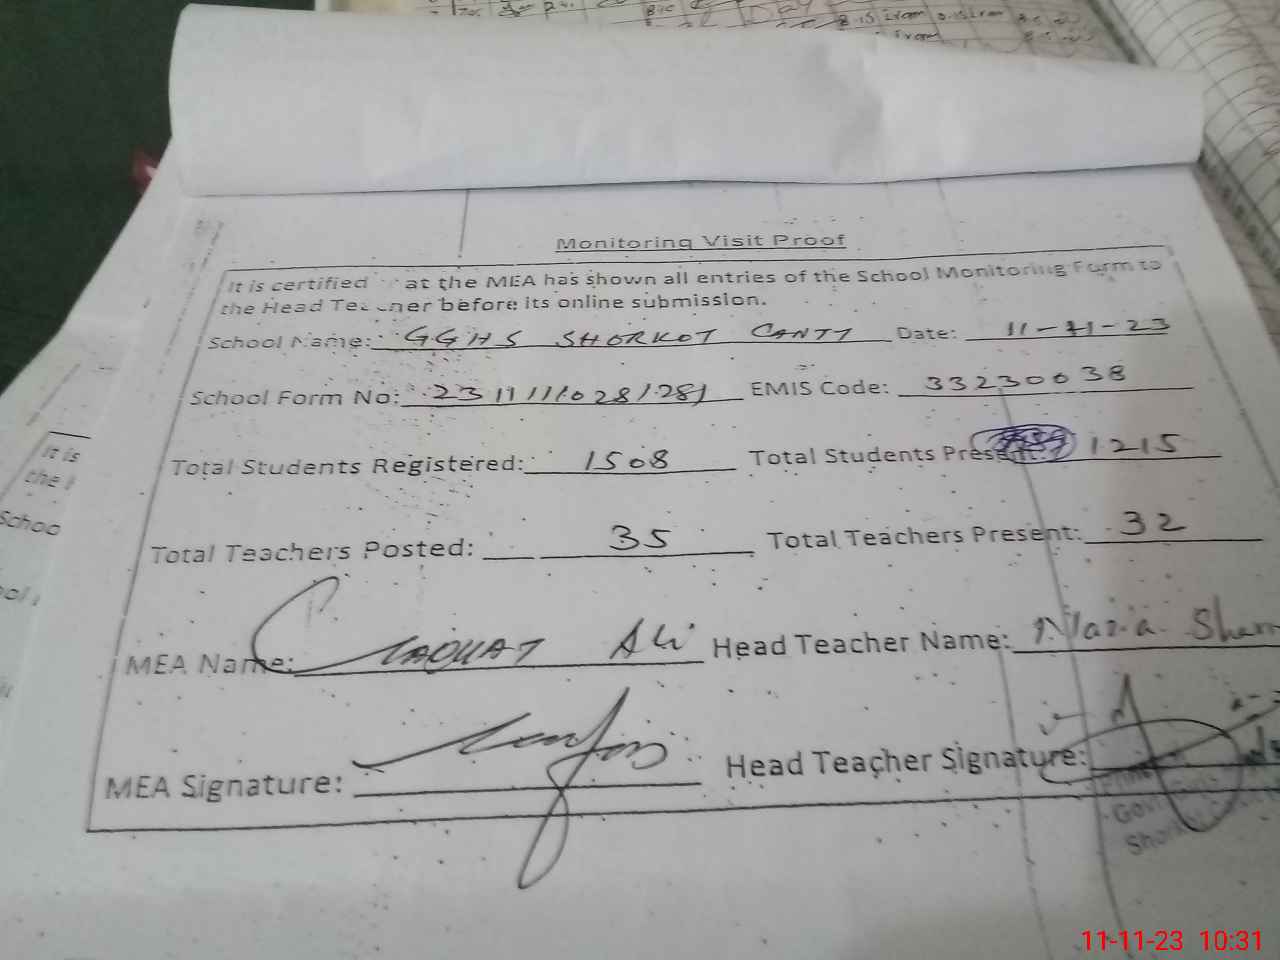 Monitoring Visit Proof
It is certified at the MEA has shown all entries of the School Monitoring Form to
the Head Teacher before its online submission.
School Name: GGHS SHORKOT CANTT Date: 11-11-23
School Form No: EMIS Code: 33230038
Total Students Registered: 1508 Total Students Present: 1215
Total Teachers Posted: 35 Total Teachers Present: 32
MEA Name: LAQUAT Ali Head Teacher Name: Nazia
MEA Signature: Head Teacher Signature:
It is
the
Schoo
11-11-23 10:31